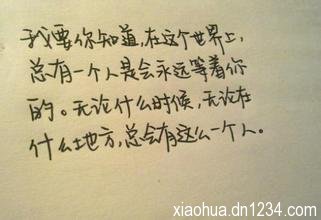 我要你知道,在这个世界上,
总有一个人是会永远等着你
的。无论什么时候,无论在
什么地方,总会有这么一个人。
xiaohua.dn1234.com